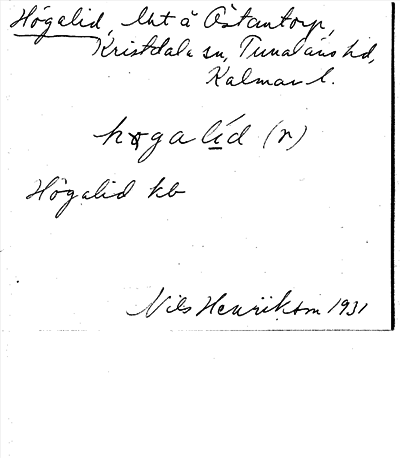 Högalid, lht å Östantorp,
Kristdala sn, Tunaläns hd,
Kalmar l.
högalid (n)
Högalid kb
Nils Henrikson 1931